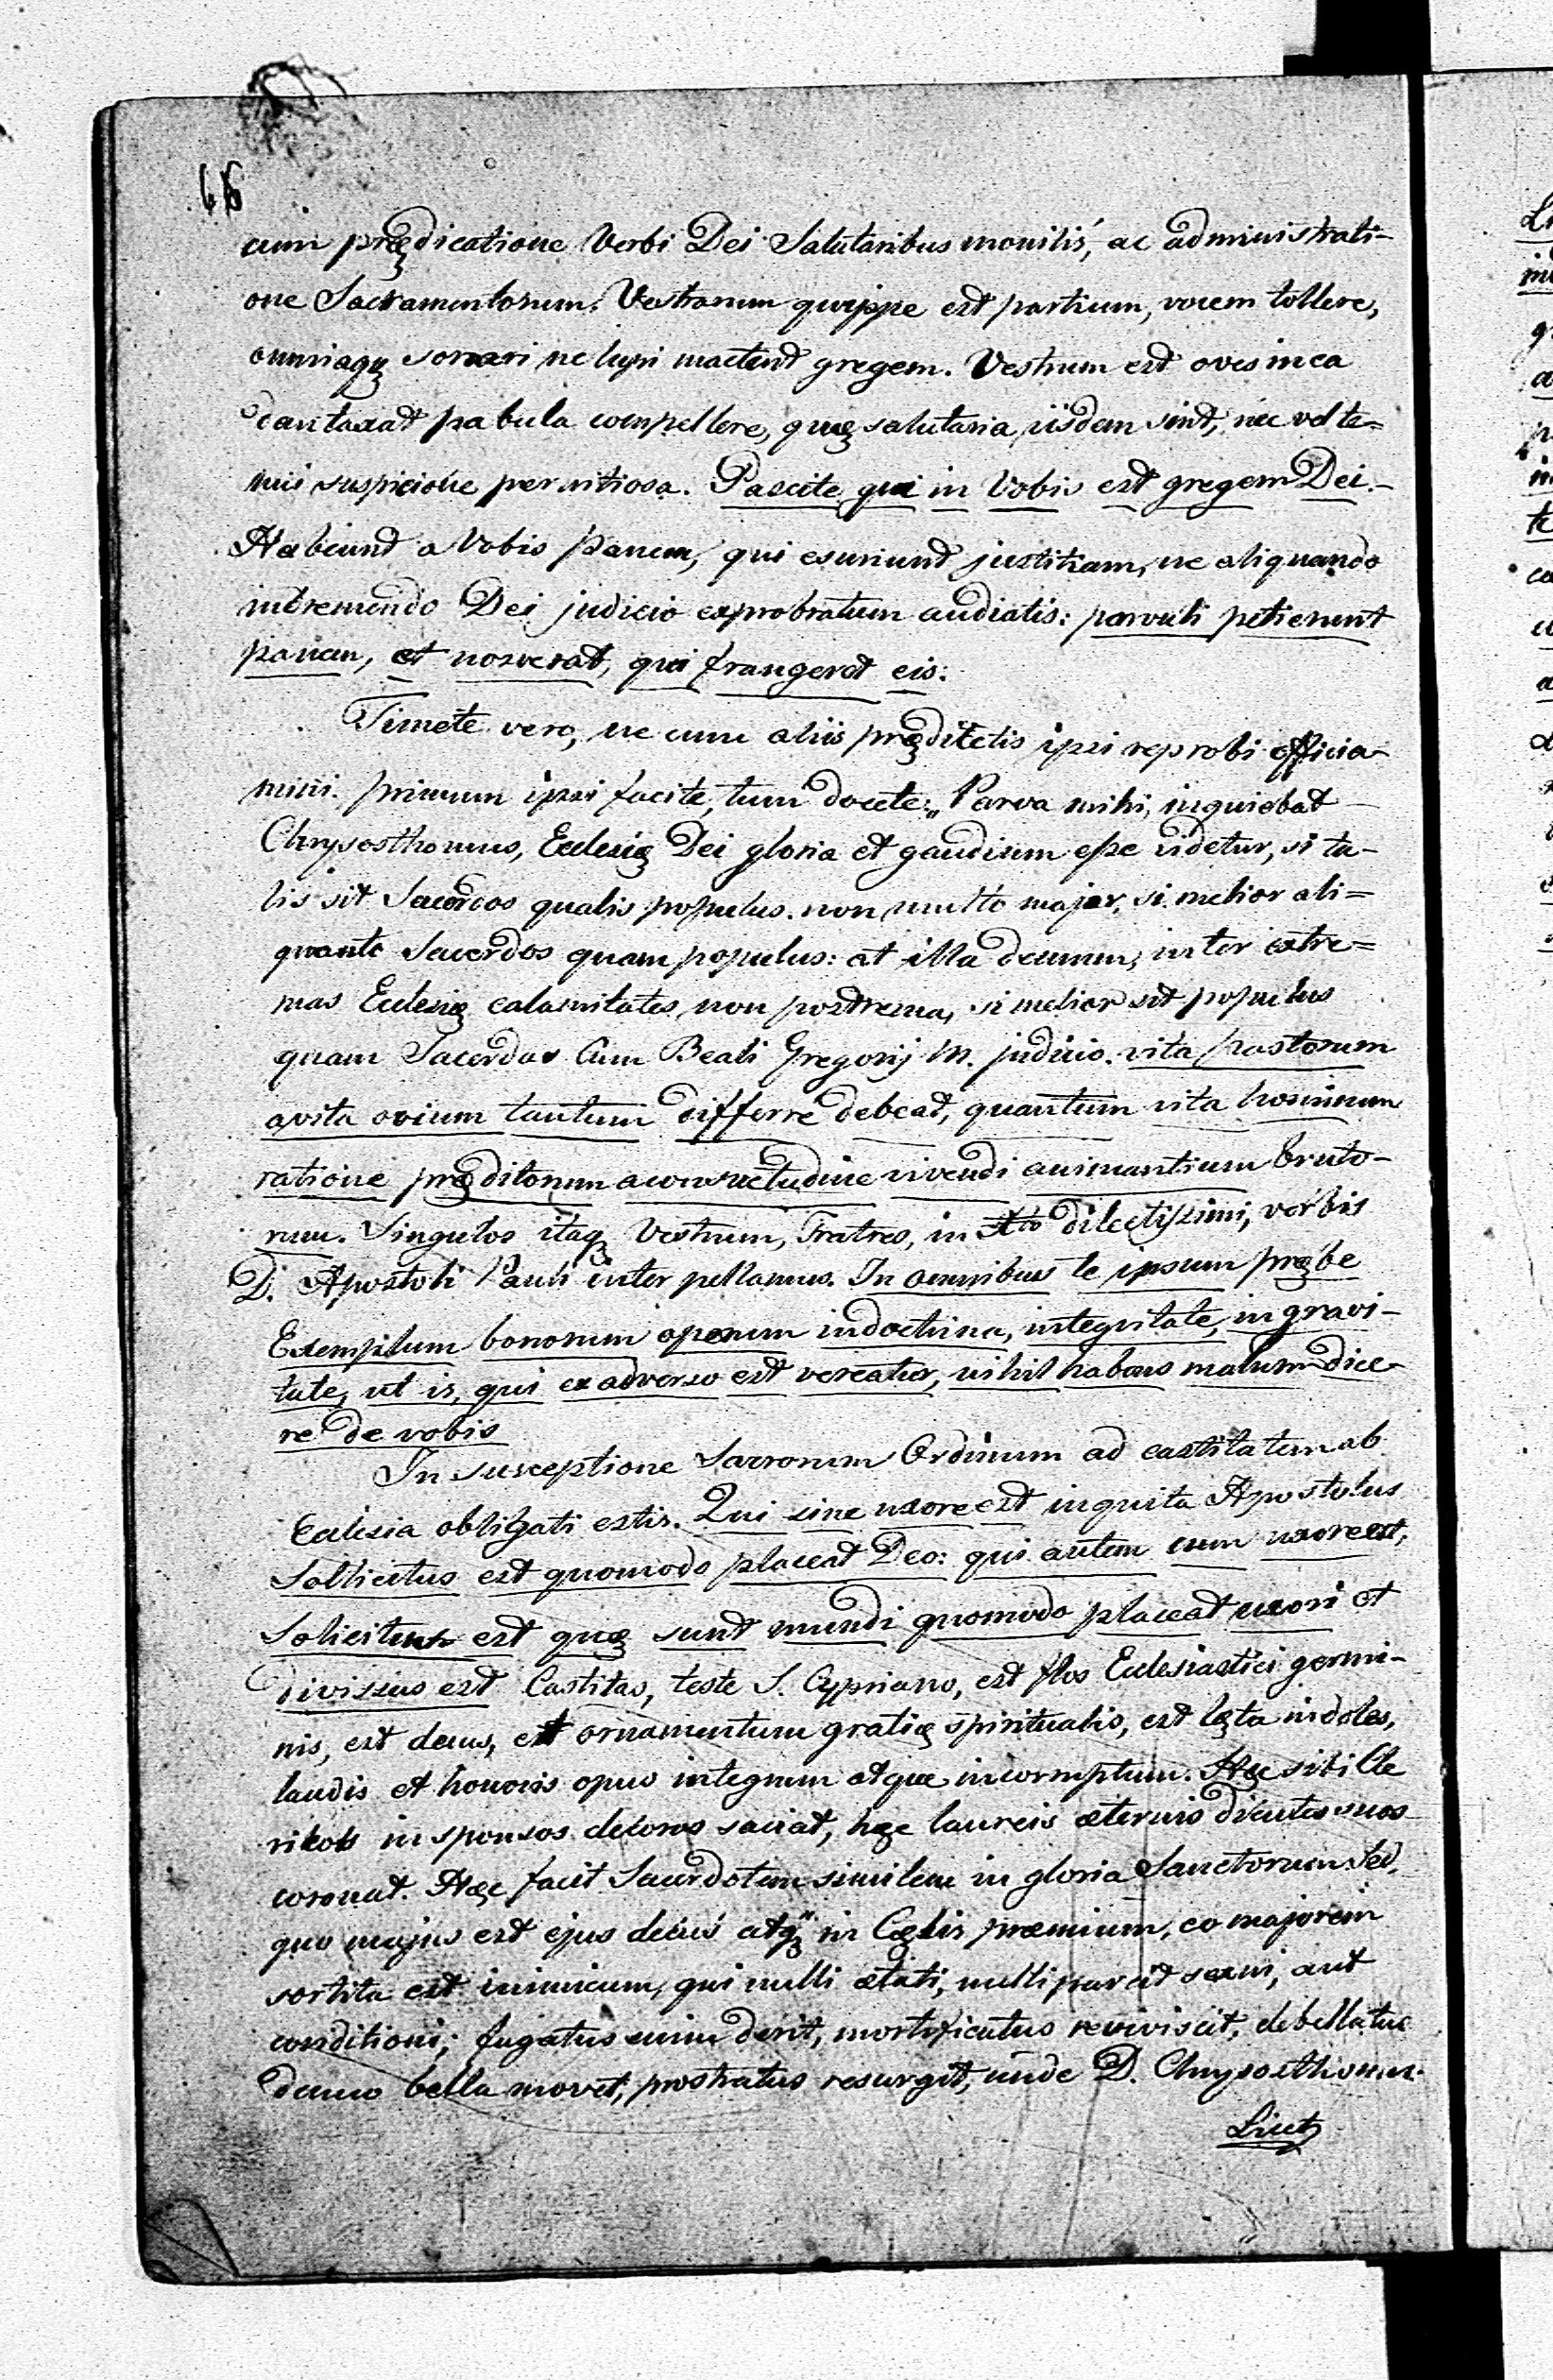 66
cum prędicatione Verbi Dei Salutaribus monitis, ac administrati-
one Sacramentorum. Vestrarum quippe est partium, vocem tollere,
omniaqę conari ne lupi mactent gregem. Vestrum est oves in ea
dantaxat pabula compellere, quę salutaria iisdem sint, nec vel te=
nui suspicione pernitiosa. Pascite qui in Vobis est gregem Dei.-
Habeant a Vobis panem, qui esuriunt justitiam, ne aliquando
intremendo Dei judicio exprobratum audiatis: parvuli petierunt
panem, et non erat, qui frangeret eis:
Timete vero, ne cum aliis prędicetis ipsi reprobi efficia-
mini. primum ipsi facite, tum docete: „Parva mihi, inquiebat
Chrysosthomus, Ecclesię Dei gloria et gaudium esse videtur, si ta-
lis sit Sacerdos qualis populus. non multo major, si melior ali=
quanto Sacerdos quam populus: at illa demum, inter extre=
mas Eclesię calamitates, non postrema, si melior sit populus
quam Sacerdos Cum Beati Gregorij M. judicio. vita pastorum
a vita ovium tantum differre debeat, quantum vita hominum
ratione pręditorum a consvetudine vivendi animantium bruto-
rum. Singulos itaqę Vestrum, Fratres, in Xto dilectissimi, verbis
D. Apostoli Pauli inter pellamus. In omnibus te ipsum prębe
Exemplum bonorum operum in doctrina, integritate, in gravi-
tate, ut is, qui ex adverso est vereatur, nihil habens malum dice-
re de vobis
In susceptione Sacrorum Ordinum ad castitatem ab
Ecclesia obligati estis. Qui sine uxore est inquit a Apostolus
Sollicitus est quomodo placeat Deo: qui autem cum uxore est,
Solicitus est quę sunt mundi quomodo placeat uxori et
divisus est Castitas, teste S. Cypriano, est flos Eclesiastici germi-
nis, est decus, est ornamentum gratię spiritualis, est lęta indoles,
laudis et honoris opus integrum atque incorruptum. Hęc sibi Cle
ricos in sponsos decoros sociat, hęc laureis æternis
coronat. Hęc facit Sacerdotem similem in gloria Sanctorum. Sed,
quo majus est ejus decus atqę in Cęlis præmium, eo majorem
sortita est inimicum, qui nulli ætati, nulli parcit sexui, aut
conditioni; fugatus enim redit, mortificatus reviviscit, debellatus
denuo bella movet, prostratus resurgit, unde D. Chrysosthomus.
Licet